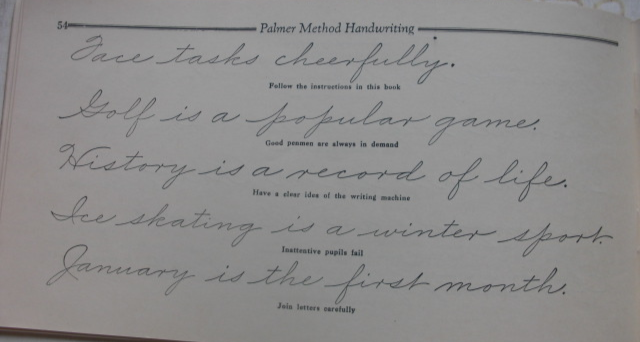 54 Palmer Method Handwriting
Face tasks cheerfully.
Follow the instructions in this book
Golf is a popular game.
Good penmen are always in demand
History is a record of life.
Have a clear idea of the writing machine
Ice skating is a winter sport.
Inattentive pupils fail
January is the first month.
Join letters carefully